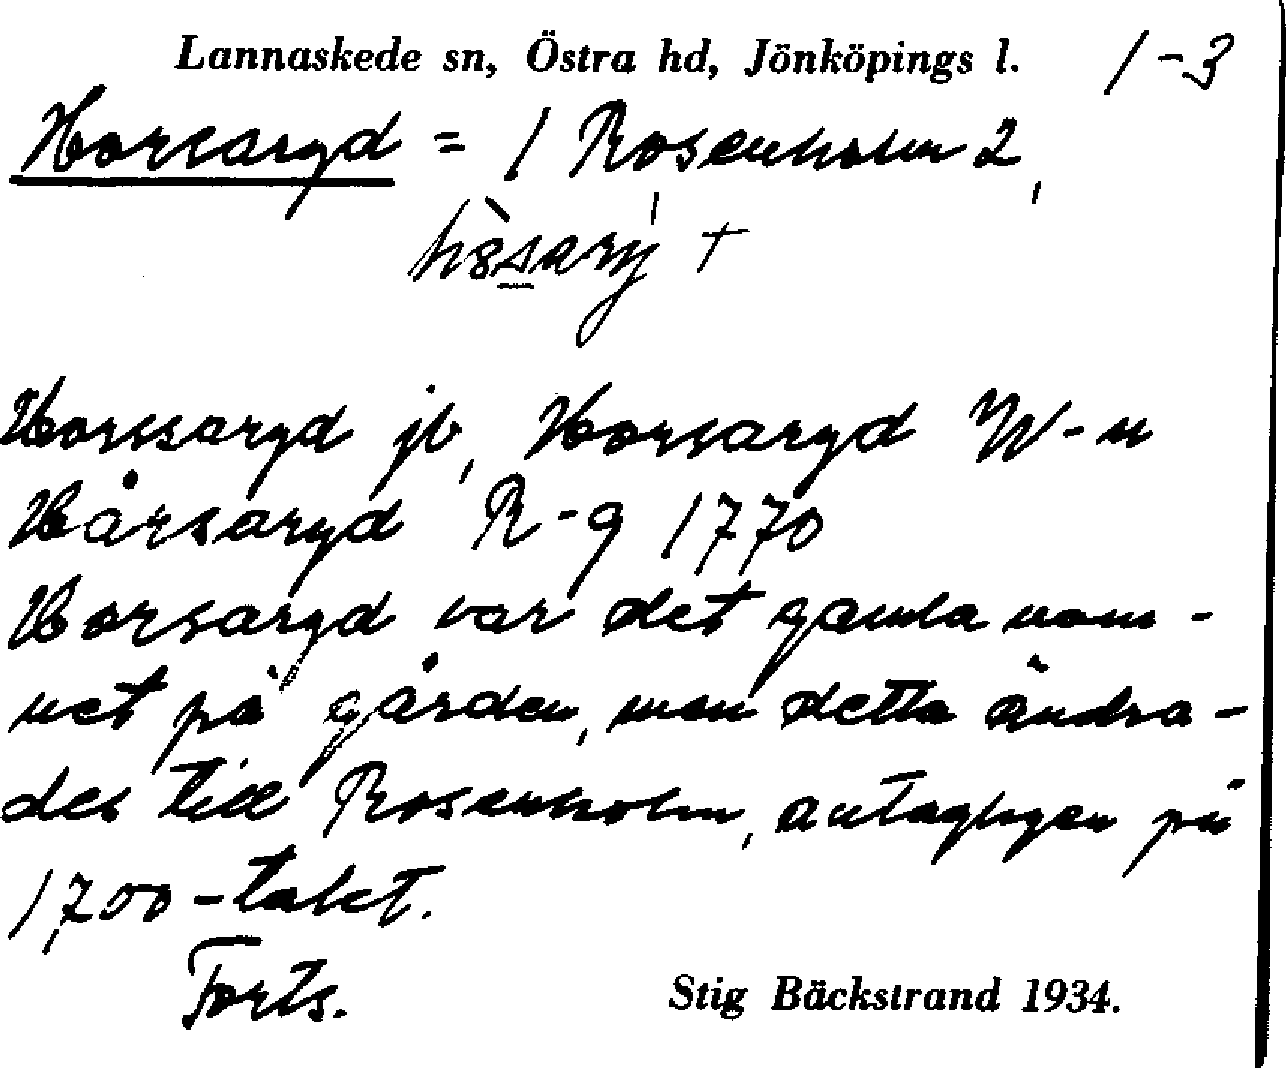 Lannaskede sn, Östra hd, Jönköpings l. 1-3
Horsaryd = 1 Rosenholm 2,
Horssaryd jb, Horsaryd W-n
Hårsaryd R-g 1770
Horsaryd var det gamla nam-
net på gården, men detta ändra-
des till Rosenholm, antagligen på
1700-talet.
Forts. Stig Bäckstrand 1934.